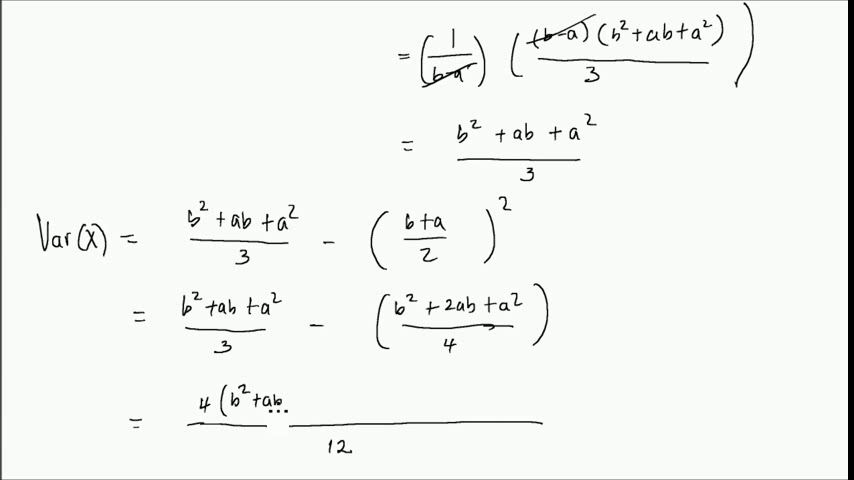 = (1/(b-a)) ((b-a)(b²+ab+a²)/3)
= (b²+ab+a²)/3
Var(X) = (b²+ab+a²)/3 - ((b+a)/2)²
= (b²+ab+a²)/3 - ((b²+2ab+a²)/4)
= 4(b²+ab.../12